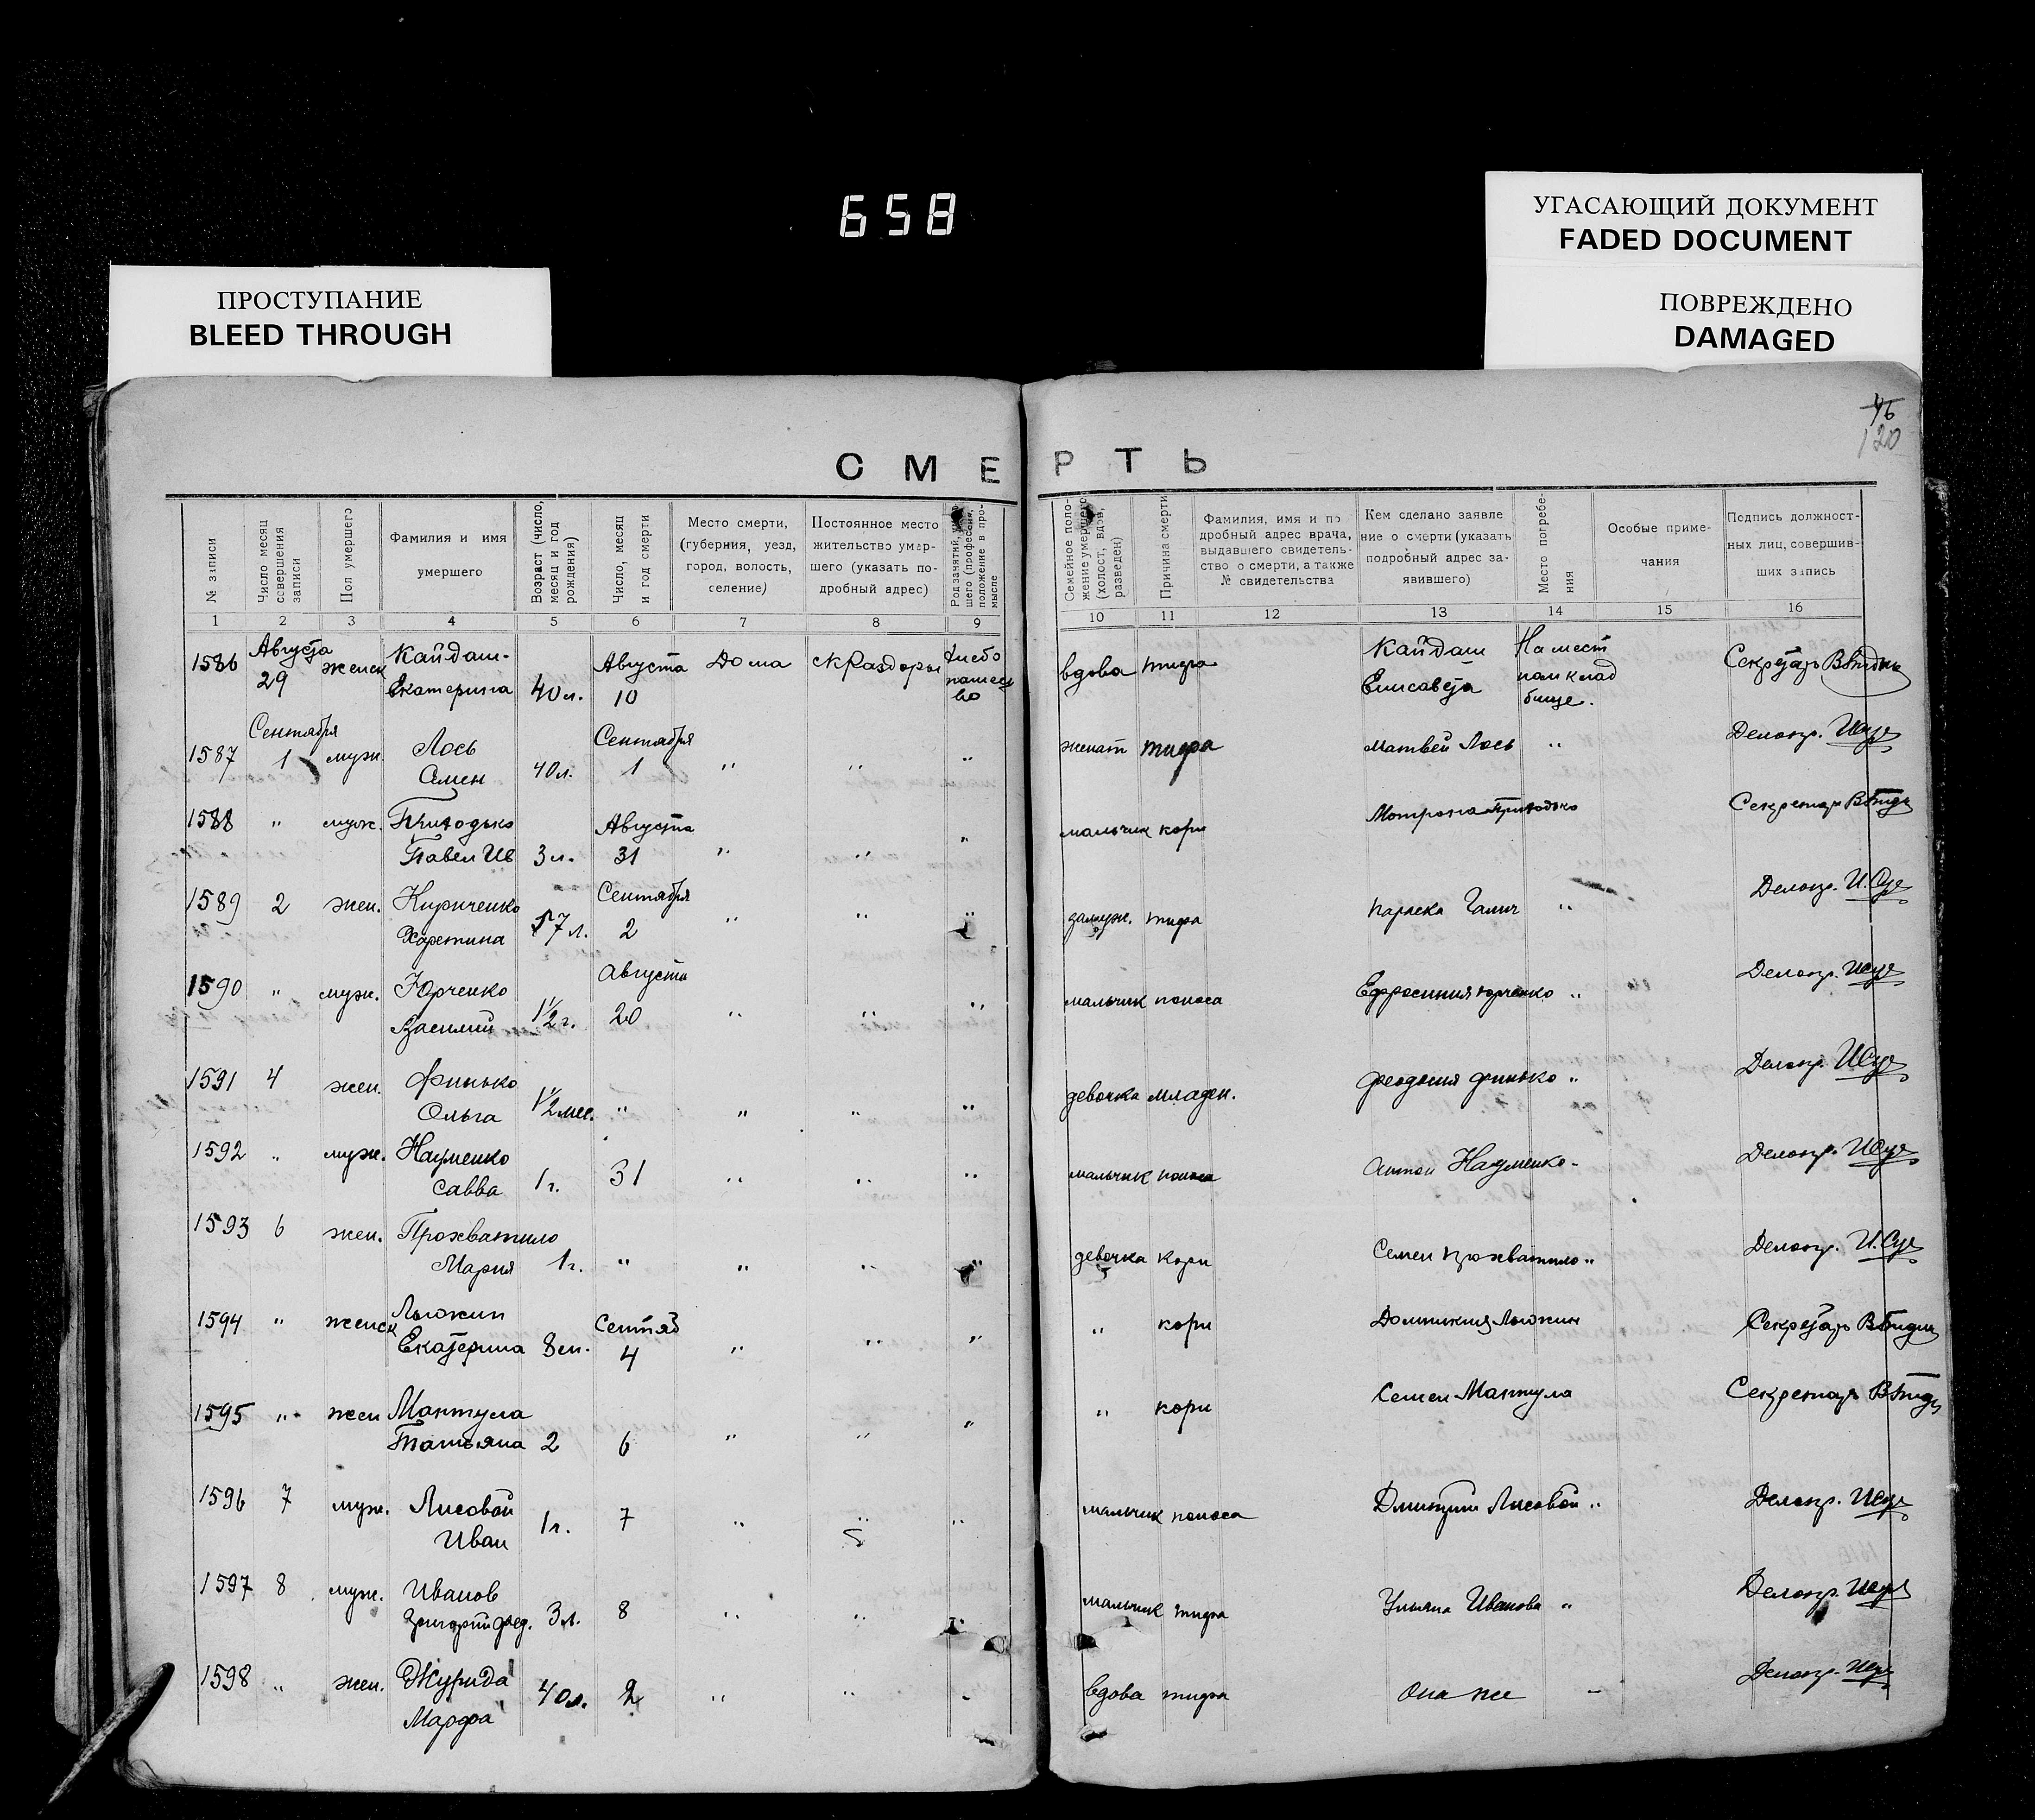 658
УГАСАЮЩИЙ ДОКУМЕНТ
FADED DOCUMENT
ПРОСТУПАНИЕ
BLEED THROUGH
ПОВРЕЖДЕНО
DAMAGED
46
120
СМЕРТЬ
№ записи
Число месяц совершения записи
Пол умершего
Фамилия и имя умершего
Возраст (число, месяц и год рождения)
Число, месяц и год смерти
Место смерти, (губерния, уезд, город, волость, селение)
Постоянное место жительство умершего (указать подробный адрес)
Род занятий, умершего (профессия, положение в промысле
Семейное положение умершего (холост, вдов, разведен)
Причина смерти
Фамилия, имя и подробный адрес врача, выдавшего свидетельство о смерти, а также № свидетельства
Кем сделано заявление о смерти (указать подробный адрес заявившего)
Место погребения
Особые примечания
Подпись должностных лиц, совершивших запись
1 2 3 4 5 6 7 8 9 10 11 12 13 14 15 16
1586 Августа 29 женск Кайдаш Екатерина 40 л. Августа 10 Дома Раздоры Хлебо пашес во вдова тифа Кайдаш Елисавета На мест ном клад бище. Секретарь
1587 Сентября 1 муж. Лось Семен 40 л. Сентября 1 " " " женат тифа Матвей Лось " Делопр.
1588 " муж. Приходько Павел Ив 3 л. Августа 31 " " " мальчик кори Мотрона Приходько Секретарь
1589 2 жен. Кириченко Харетина 57 л. Сентября 2 " " " замуж. тифа Параска Галич " Делопр.
1590 " муж. Юрченко Василий 1½ г. Августа 20 " " " мальчик поноса Ефросиния Юрченко " Делопр.
1591 4 жен. Финько Ольга 1½ мес. " " " " девочка младен. Феодосия Финько " Делопр.
1592 " муж. Науменко Савва 1 г. 31 " " " мальчик поноса Антон Науменко Делопр.
1593 6 жен. Прохватило Мария 1 г. " " " " девочка кори Семен Прохватило " Делопр.
1594 " женск Екатерина 8 м. Сентяб 4 " " " " кори Секретарь
1595 " жен Мантула Татьяна 2 6 " " " " кори Семен Мантула Секретарь
1596 7 муж. Лисовой Иван 1 г. 7 " " " мальчик поноса Дмитрий Лисовой " Делопр.
1597 8 муж. Иванов Григорий Фед. 3 л. 8 " " " мальчик тифа Ульяна Иванова " Делопр.
1598 " жен. Журида Марфа 40 л. 2 " " " вдова тифа Она же – Делопр.